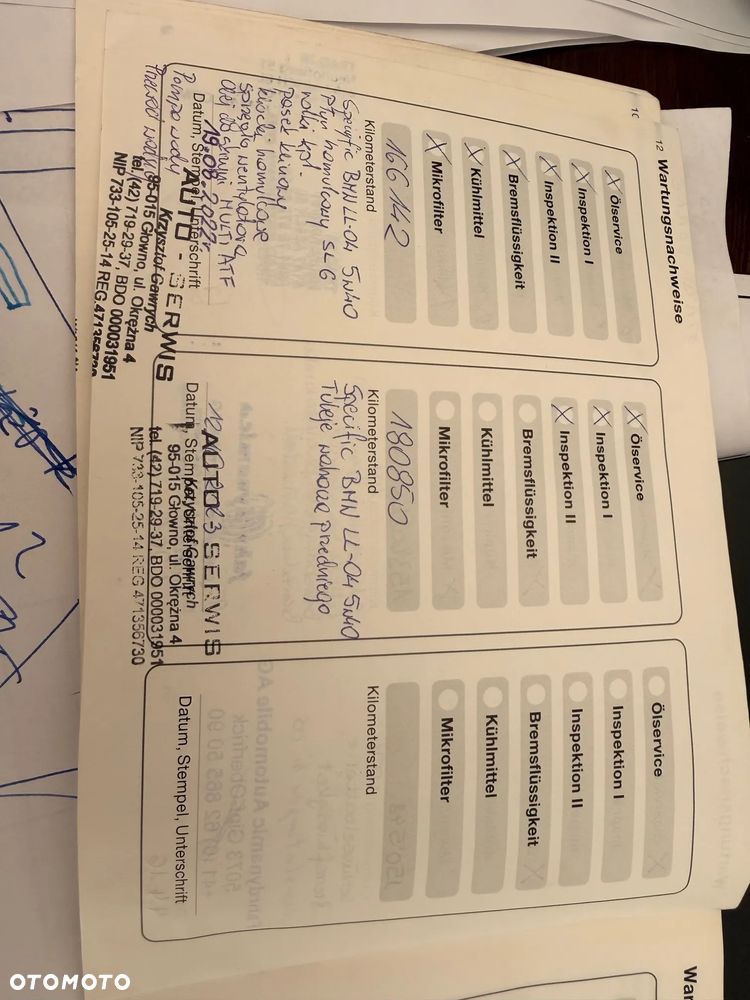 10
12 Wartungsnachweise
X Ölservice
X Inspektion I
X Inspektion II
X Bremsflüssigkeit
X Kühlmittel
X Mikrofilter
166 142
Kilometerstand
Specific BMW LL-04 5W40
płyn hamulcowy SL6
rolki kpl.
pasek klinowy
klocki hamulcowe
sprzęgło wentylatora
olej do skrzyni MULTI ATF
19.08.2022r.
Datum, Stempel, Unterschrift
Pompa wody
Przewód wody
AUTO - SERWIS
Krzysztof Gawrych
95-015 Głowno, ul. Okrężna 4
tel. (42) 719-29-37, BDO 000031951
NIP 733-105-25-14 REG 471356730
X Ölservice
X Inspektion I
X Inspektion II
Bremsflüssigkeit
Kühlmittel
Mikrofilter
180850
Kilometerstand
Specific BMW LL-04 5W40
Tuleje wahacza przedniego
Datum, Stempel, Unterschrift
AUTO SERWIS
Krzysztof Gawrych
95-015 Głowno, ul. Okrężna 4
tel. (42) 719-29-37, BDO 000031951
NIP 733-105-25-14 REG 471356730
Ölservice
Inspektion I
Inspektion II
Bremsflüssigkeit
Kühlmittel
Mikrofilter
Kilometerstand
Datum, Stempel, Unterschrift
War
OTOMOTO